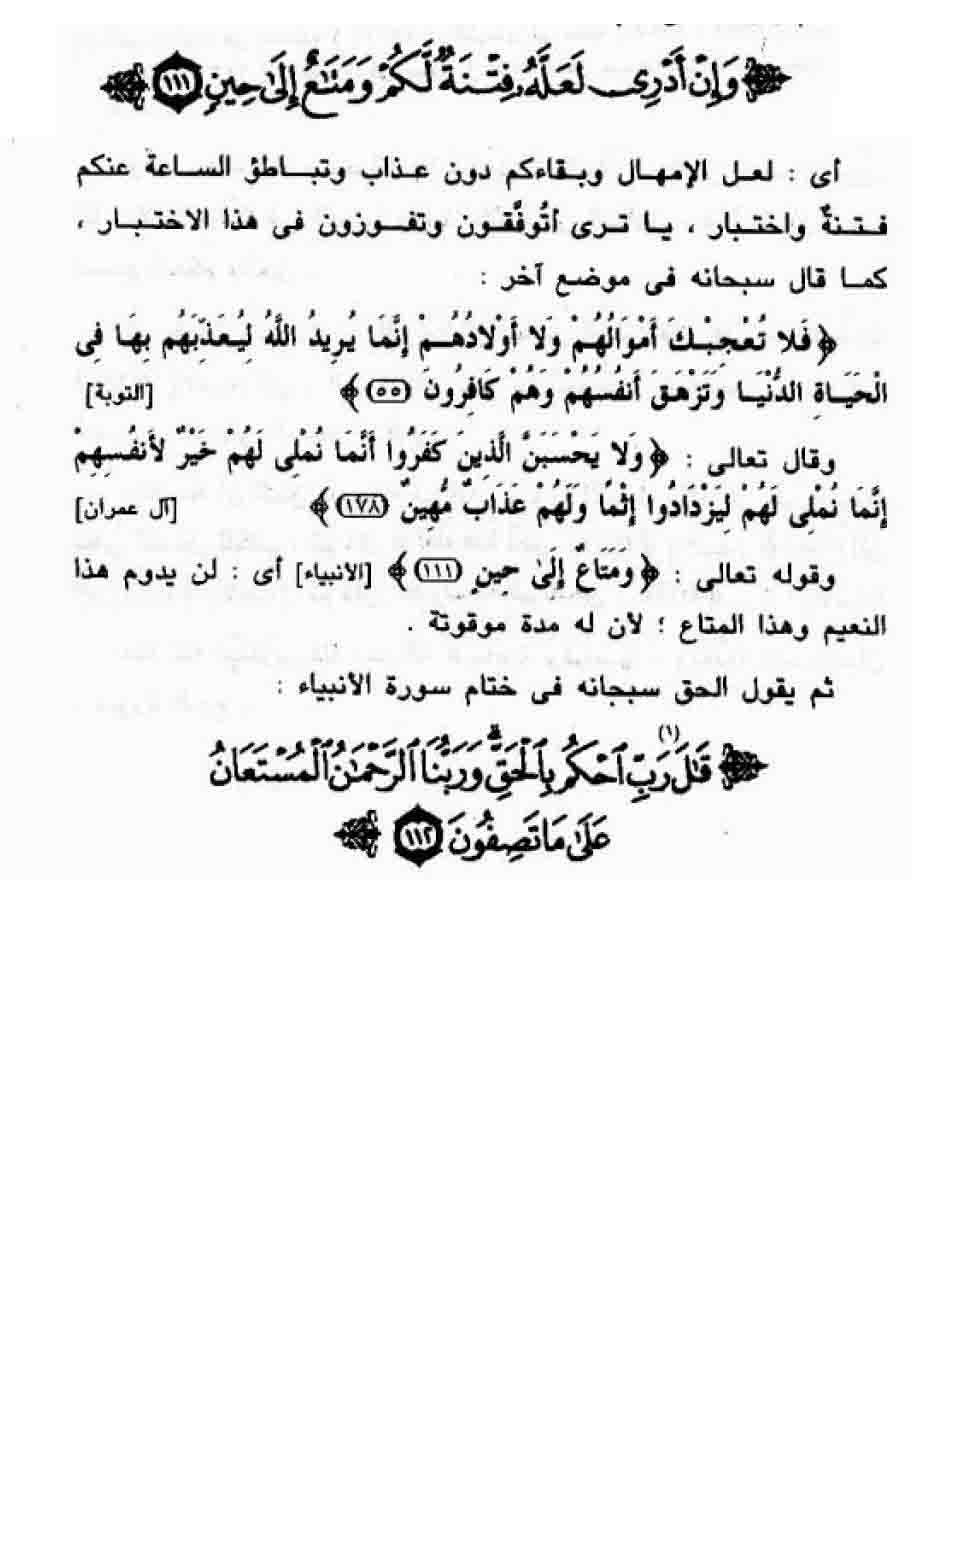 ﴿ وَإِنْ أَدْرِى لَعَلَّهُۥ فِتْنَةٌ لَّكُمْ وَمَتَٰعٌ إِلَىٰ حِينٍ ١١١ ﴾
أى : لعل الإمهال وبقاءكم دون عذاب وتباطؤ الساعة عنكم
فتنةٌ واختبار ، يا ترى أتُوفَّقون وتفوزون فى هذا الاختبار ،
كما قال سبحانه فى موضع آخر :
﴿ فَلا تُعْجِبْكَ أَمْوَالُهُمْ وَلا أَوْلادُهُمْ إِنَّمَا يُرِيدُ اللَّهُ لِيُعَذِّبَهُم بِهَا فِى
الْحَيَاةِ الدُّنْيَا وَتَزْهَقَ أَنفُسُهُمْ وَهُمْ كَافِرُونَ (٥٥) ﴾ [التوبة]
وقال تعالى : ﴿ وَلا يَحْسَبَنَّ الَّذِينَ كَفَرُوا أَنَّمَا نُمْلِى لَهُمْ خَيْرٌ لأَنفُسِهِمْ
إِنَّمَا نُمْلِى لَهُمْ لِيَزْدَادُوا إِثْمًا وَلَهُمْ عَذَابٌ مُّهِينٌ (١٧٨) ﴾ [آل عمران]
وقوله تعالى : ﴿ وَمَتَاعٌ إِلَىٰ حِينٍ (١١١) ﴾ [الأنبياء] أى : لن يدوم هذا
النعيم وهذا المتاع ؛ لأن له مدة موقوتة .
ثم يقول الحق سبحانه فى ختام سورة الأنبياء :
﴿ قَٰلَ (١) رَبِّ ٱحْكُم بِٱلْحَقِّ ۗ وَرَبُّنَا ٱلرَّحْمَٰنُ ٱلْمُسْتَعَانُ
عَلَىٰ مَا تَصِفُونَ ١١٢ ﴾